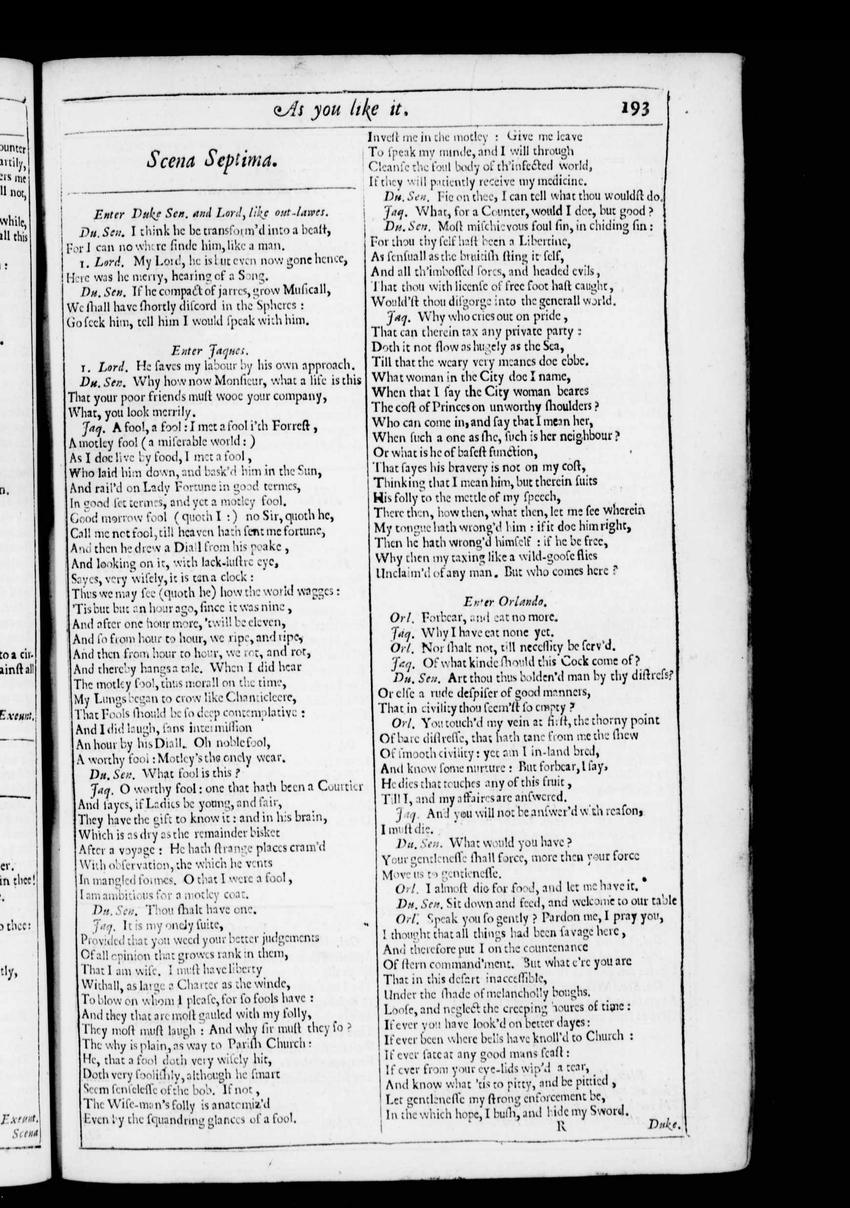 As you like it.
193
Scena Septima.
Enter Duke Sen. and Lord, like out-lawes.
Du. Sen. I think he be transform'd into a beaſt,
For I can no where finde him, like a man.
1. Lord. My Lord, he is but even now gone hence,
Here was he merry, hearing of a Song.
Du. Sen. If he compact of jarres, grow Muſicall,
We ſhall have ſhortly diſcord in the Spheres :
Go ſeek him, tell him I would ſpeak with him.
Enter Jaques.
1. Lord. He ſaves my labour by his own approach.
Du. Sen. Why how now Monſieur, what a life is this
That your poor friends muſt wooe your company,
What, you look merrily.
Jaq. A fool, a fool : I met a fool i'th Forreſt ,
A motley fool ( a miſerable world : )
As I doe live by food, I met a fool ,
Who laid him down, and bask'd him in the Sun,
And rail'd on Lady Fortune in good termes,
In good ſet termes, and yet a motley fool.
Good morrow fool ( quoth I : ) no Sir, quoth he,
Call me not fool, till heaven hath ſent me fortune,
And then he drew a Diall from his poake ,
And looking on it, with lack-luſtre eye,
Sayes, very wiſely, it is ten a clock :
Thus we may ſee (quoth he) how the world wagges :
'Tis but but an hour ago, ſince it was nine ,
And after one hour more, 'twill be eleven,
And ſo from hour to hour, we ripe, and ripe,
And then from hour to hour, we rot, and rot,
And thereby hangs a tale. When I did hear
The motley fool, thus morall on the time,
My Lungs began to crow like Chanticleere,
That Fools ſhould be ſo deep contemplative :
And I did laugh, ſans intermiſſion
An hour by his Diall. Oh noble fool,
A worthy fool : Motley's the onely wear.
Du. Sen. What fool is this ?
Jaq. O worthy fool : one that hath been a Courtier
And ſayes, if Ladies be young, and fair,
They have the gift to know it : and in his brain,
Which is as dry as the remainder bisket
After a voyage : He hath ſtrange places cram'd
With obſervation, the which he vents
In mangled formes. O that I were a fool ,
I am ambitious for a motley coat.
Du. Sen. Thou ſhalt have one.
Jaq. It is my onely ſuite,
Provided that you weed your better judgements
Of all opinion that growes rank in them,
That I am wiſe. I muſt have liberty
Withall, as large a Charter as the winde,
To blow on whom I pleaſe, for ſo fools have :
And they that are moſt gauled with my folly,
They moſt muſt laugh : And why ſir muſt they ſo ?
The why is plain, as way to Pariſh Church :
He, that a fool doth very wiſely hit,
Doth very fooliſhly, although he ſmart
Seem ſenſeleſſe of the bob. If not ,
The Wiſe-man's folly is anatomiz'd
Even by the ſquandring glances of a fool.
Inveſt me in the motley : Give me leave
To ſpeak my minde, and I will through
Cleanſe the foul body of th'infected world,
If they will patiently receive my medicine.
Du. Sen. Fie on thee, I can tell what thou wouldſt do.
Jaq. What, for a Counter, would I doe, but good ?
Du. Sen. Moſt miſchievous foul ſin, in chiding ſin :
For thou thy ſelf haſt been a Libertine,
As ſenſuall as the bruitiſh ſting it ſelf,
And all th'imboſſed ſores, and headed evils,
That thou with licenſe of free foot haſt caught,
Would'ſt thou diſgorge into the generall world.
Jaq. Why who cries out on pride ,
That can therein tax any private party :
Doth it not flow as hugely as the Sea,
Till that the weary very meanes doe ebbe.
What woman in the City doe I name,
When that I ſay the City woman beares
The coſt of Princes on unworthy ſhoulders ?
Who can come in, and ſay that I mean her,
When ſuch a one as ſhe, ſuch is her neighbour ?
Or what is he of baſeſt function,
That ſayes his bravery is not on my coſt,
Thinking that I mean him, but therein ſuits
His folly to the mettle of my ſpeech,
There then, how then, what then, let me ſee wherein
My tongue hath wrong'd him : if it doe him right,
Then he hath wrong'd himſelf : if he be free,
Why then my taxing like a wild-gooſe flies
Unclaim'd of any man. But who comes here ?
Enter Orlando.
Orl. Forbear, and eat no more.
Jaq. Why I have eat none yet.
Orl. Nor ſhalt not, till neceſſity be ſerv'd.
Jaq. Of what kinde ſhould this Cock come of ?
Du. Sen. Art thou thus bolden'd man by thy diſtreſs?
Or elſe a rude deſpiſer of good manners,
That in civility thou ſeem'ſt ſo empty ?
Orl. You touch'd my vein at firſt, the thorny point
Of bare diſtreſſe, that hath tane from me the ſhew
Of ſmooth civility : yet am I in-land bred,
And know ſome nurture : But forbear, I ſay,
He dies that touches any of this fruit ,
Till I, and my affaires are anſwered.
Jaq. And you will not be anſwer'd with reaſon,
I muſt die.
Du. Sen. What would you have ?
Your gentleneſſe ſhall force, more then your force
Move us to gentleneſſe.
Orl. I almoſt die for food, and let me have it.
Du. Sen. Sit down and feed, and welcome to our table
Orl. Speak you ſo gently ? Pardon me, I pray you,
I thought that all things had been ſavage here ,
And therefore put I on the countenance
Of ſtern command'ment. But what e're you are
That in this deſart inacceſſible,
Under the ſhade of melancholly boughs.
Looſe, and neglect the creeping houres of time :
If ever you have look'd on better dayes :
If ever been where bells have knoll'd to Church :
If ever ſate at any good mans feaſt :
If ever from your eye-lids wip'd a tear,
And know what 'tis to pitty, and be pittied ,
Let gentleneſſe my ſtrong enforcement be,
In the which hope, I bluſh, and hide my Sword.
R
Duke.